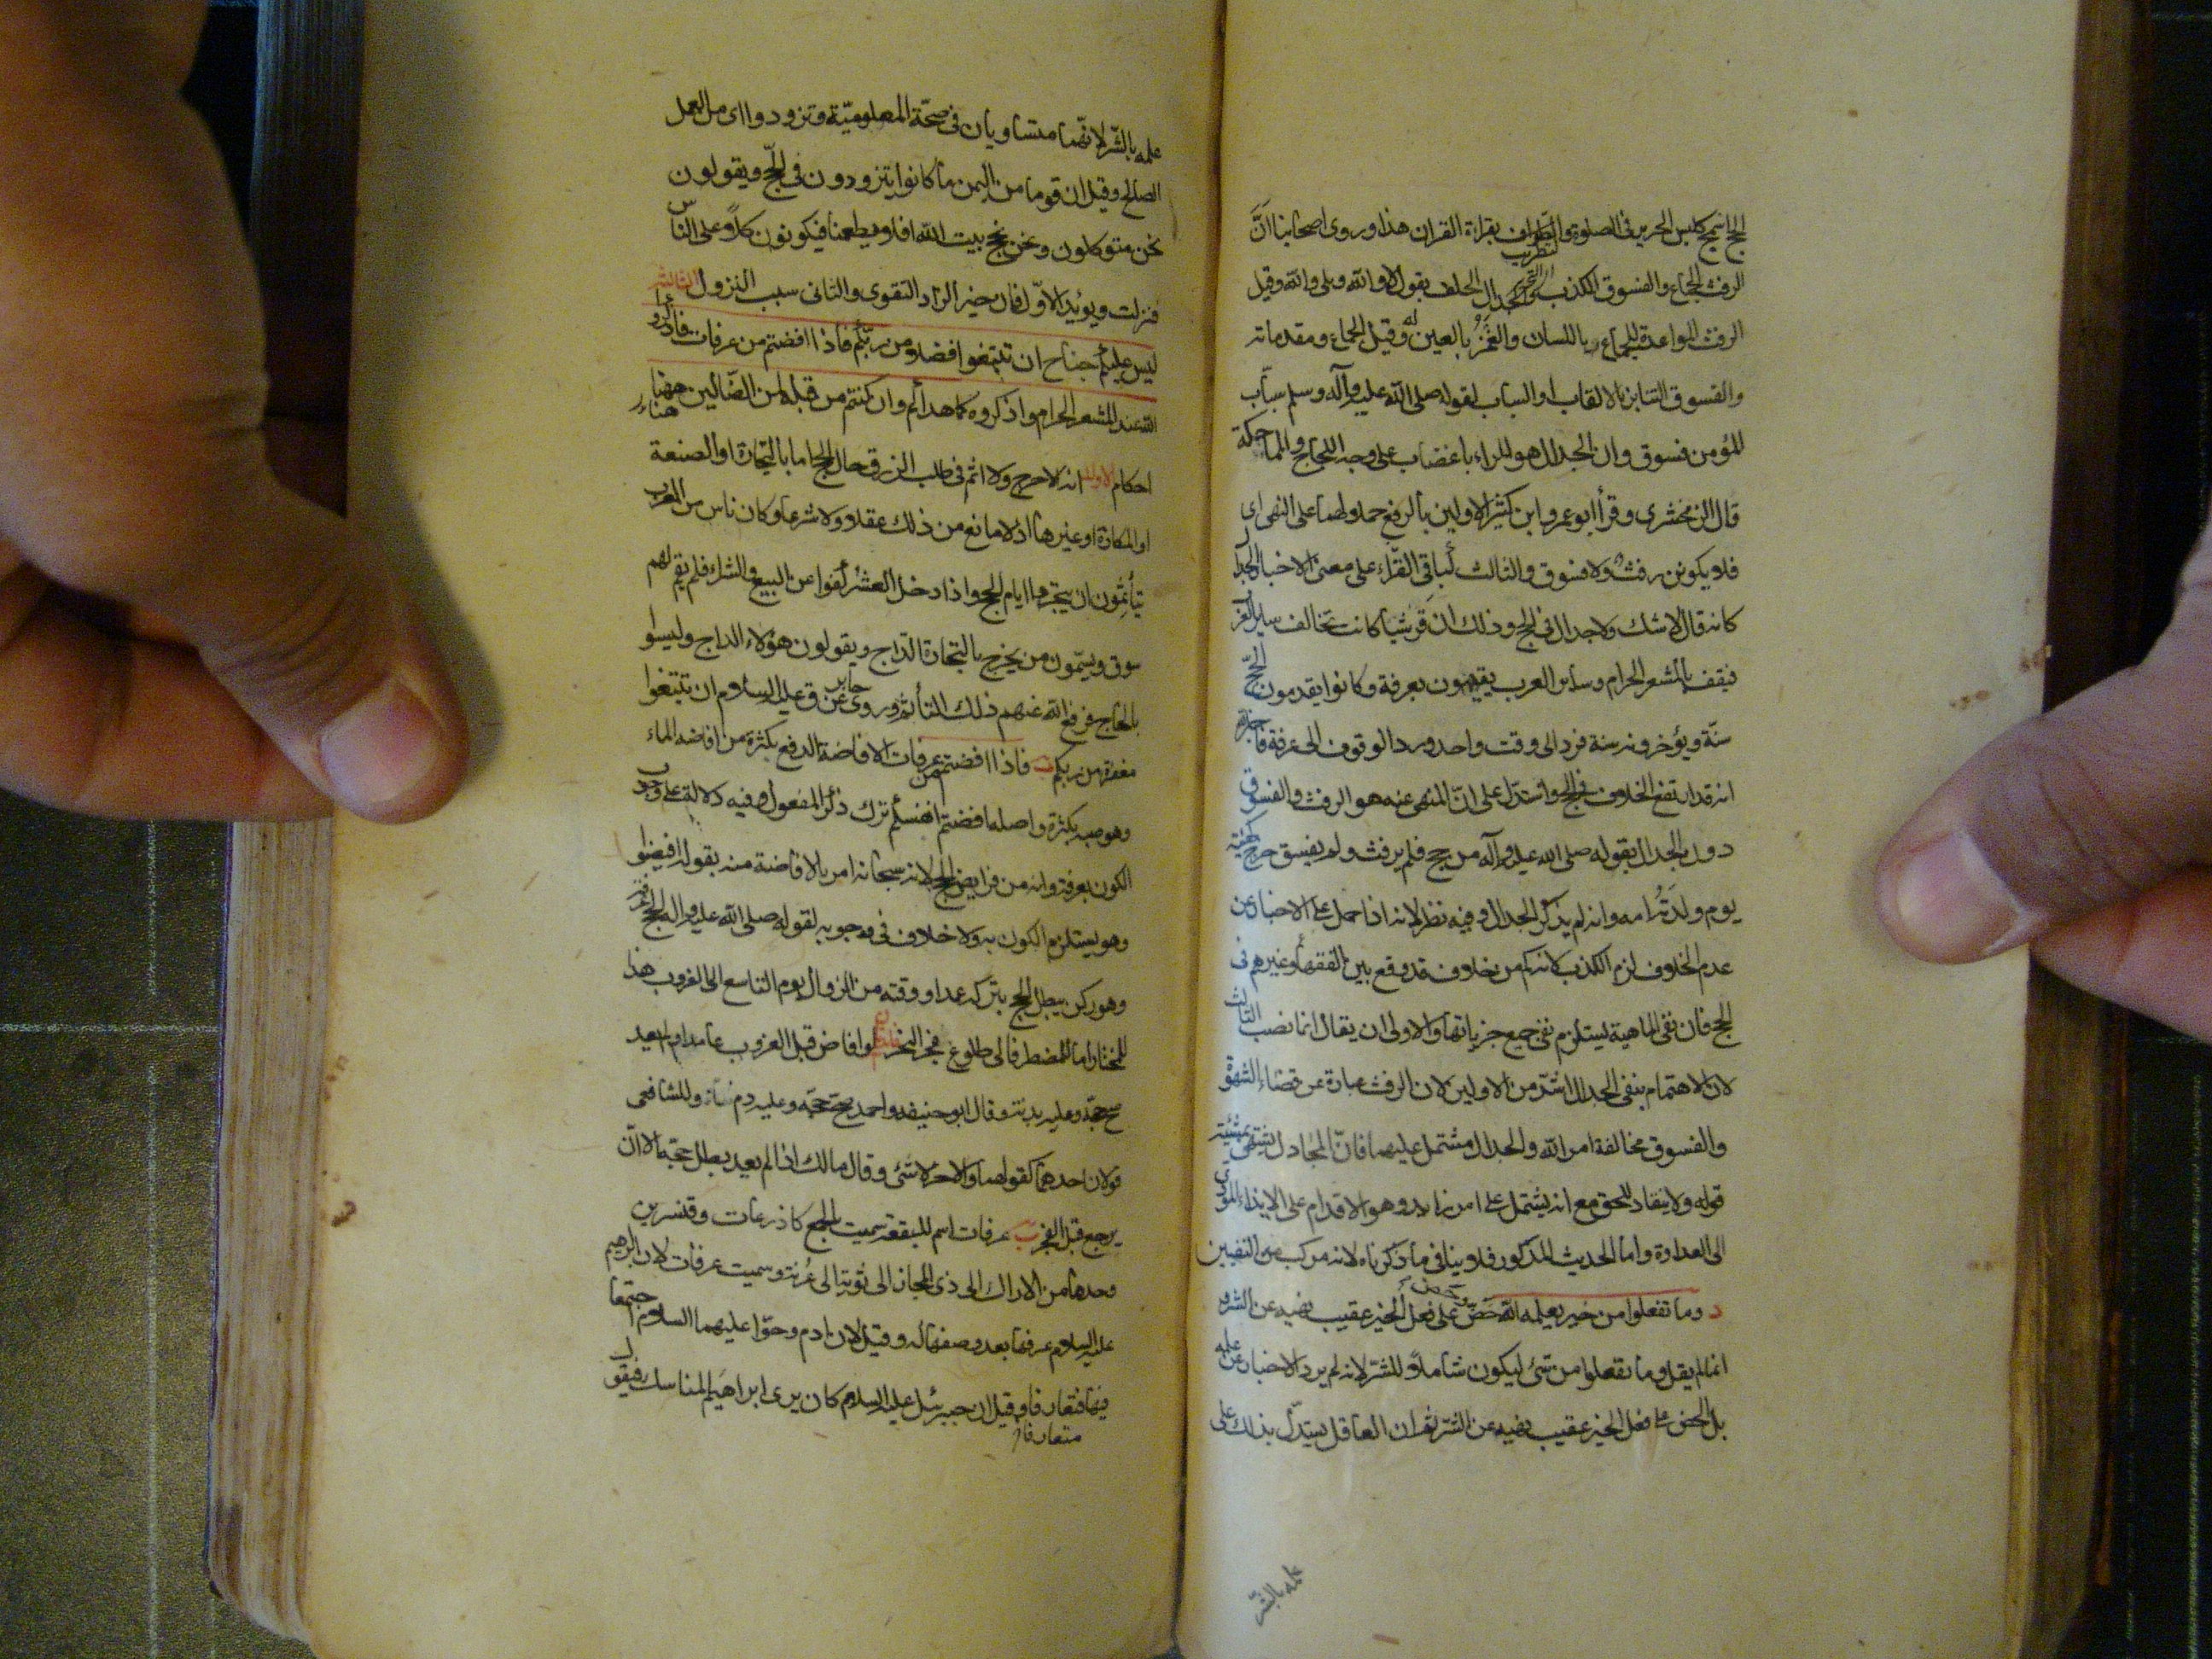 الحج اسمج كلبس الحرير في الصلوة والتطريب بقراءة القران هذا وروى اصحابنا انّ
الرفث الجماع والفسوق الكذب والجدال الحلف بقول لا والله وبلى والله وقيل
الرفث المواعدة للجماع باللسان والغمز بالعين له وقيل الجماع ومقدماته
والفسوق التنابز بالالقاب او السباب لقوله صلى الله عليه وآله وسلم سباب
المؤمن فسوق وان الجدال هو المراء باغضاب على وجه اللجاج والمماحكة
قال الزمخشري وقرأ ابو عمرو وابن كثير الاولين بالرفع حملا لهما على النهى اى
فلا يكونن رفث ولا فسوق والثالث كباقى القراء على معنى الاخبار
كانه قال لا شك ولا جدال فى الحج وذلك ان قريشا كانت تخالف ساير العرب
فتقف بالمشعر الحرام وساير العرب يقفون بعرفة وكانوا يقدمون الحج
سنة ويؤخرونه سنة فرد الى وقت واحد ورد الوقوف الى عرفة فاخبر
انه قد ارتفع الخلاف فى الحج واستدل على انّ المنهى عنه هو الرفث والفسوق
دون الجدال بقوله صلى الله عليه وآله من حج فلم يرفث ولم يفسق خرج كهيئة
يوم ولدته امه وانه لم يذكر الجدال وفيه نظر لانه اذا حمل على الاخبار عن
عدم الخلاف لزم الكذب لانه كم من خلاف قد وقع بين الفقهاء وغيرهم فى
الحج فان نفى الماهية يستلزم نفى جميع جزياتها والاولى ان يقال انما نصب الثالث
لان الاهتمام بنفى الجدال اشدّ من الاولين لان الرفث عبارة عن قضاء الشهوة
والفسوق مخالفة امر الله والجدال مشتمل عليهما فانّ المجادل يشتهى تمشية
قوله ولا ينقاد للحق مع انه يشتمل على امر زايد وهو الاقدام على الايذاء المؤدى
الى العداوة واما الحديث المذكور فلا ينافى ما ذكرناه لانه مركب من النفيين
د وما تفعلوا من خير يعلمه الله حضّ على فعل الخير عقيب نهيه عن الشر و
انما لم يقل وما تفعلوا من شئ ليكون شاملا للشر لانه لم يرد الاخبار عن علمه
بل الحض على فعل الخير عقيب نهيه عن الشر ثم ان العاقل يستدل بذلك على
علمه بالشرّ
علمه بالشّر لانّهما متساويان فى صحّة المعلوميّة وتزودوا اى من العمل
الصالح وقيل ان قوما من اليمن ما كانوا يتزودون فى الحجّ ويقولون
نحن متوكلون ونحن نحج بيت الله افلا يطعمنا فيكونون كلّا على الناس
فنزلت ويؤيد الاوّل فان خير الزاد التقوى والثانى سبب النزول الثالثة
ليس عليكم جناح ان تبتغوا فضلا من ربّكم فاذا افضتم من عرفات فاذكروا
الله عند المشعر الحرام واذكروه كما هداكم وان كنتم من قبله لمن الضّالين ههنا
احكام الاول انه لا حرج ولا اثم فى طلب الرزق حال الحج اما بالتجارة او الصنعة
او المكاراة او غيرها اذ لا مانع من ذلك عقلا ولا شرعا وكان ناس من العرب
يتأثّمون ان يتجروا ايام الحج واذا دخل العشر كفوا عن البيع والشراء فلم يقم لهم
سوق ويسمّون من يخرج بالتجارة الدّاج ويقولون هؤلاء الداج وليسوا
بالحاج فرفع الله عنهم ذلك التأثم وروى جابر عن ق عليه السلام ان تبتغوا
مغفرة من ربكم ب فاذا افضتم من عرفات الافاضة الدفع بكثرة من افاضه الماء
وهو صبه بكثرة واصله افضتم انفسكم ترك ذكر المفعول وفيه دلالة على وجوب
الكون بعرفة وانه من فرايض الحج لانه سبحانه امر بالافاضة منه بقوله افيضوا
وهو يستلزم الكون به ولا خلاف فى وجوبه لقوله صلى الله عليه واله الحج عرفة
وهو ركن يبطل الحج بتركه عمدا ووقته من الزوال يوم التاسع الى الغروب هذا
للمختار اما للمضطر فالى طلوع فجر النحر فلو افاض قبل الغروب عامدا ولم يعد
صح حجه وعليه بدنة وقال ابو حنيفة واحمد صح حجه وعليه دم شاة وللشافعى
قولان احدهما كقولهما والاخر لا شئ وقال مالك اذا لم يعد بطل حجّه الا ان
يرجع قبل الفجر عرفات اسم للبقعة سميت بالجمع كاذرعات وقنسرين
وحدها من الاراك الى ذى المجاز الى ثوية الى عُرنة وسميت عرفات لان ابرهيم
عليه السلام عرفها بعد وصفها له وقيل لان ادم وحوا عليهما السلام اجتمعا
فيها فتعارفا وقيل ان جبرئيل عليه السلام كان يرى ابراهيم المناسك فيقول
متعارفا